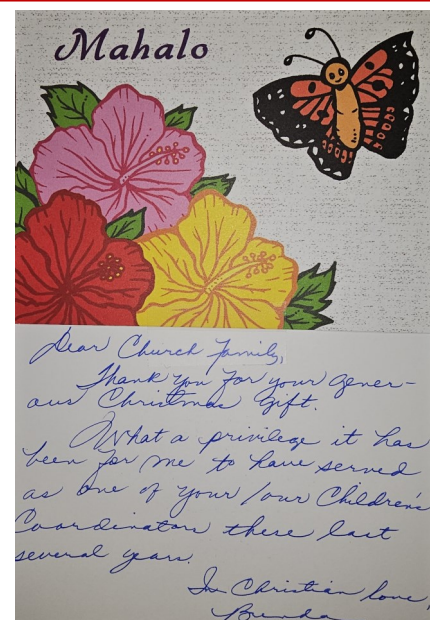 Mahalo
Dear Church Family,
Thank you for your gener-
ous Christmas gift.
What a privilege it has
been for me to have served
as one of your/our Children's
Coordinators these last
several years.
In Christian love,
Brenda